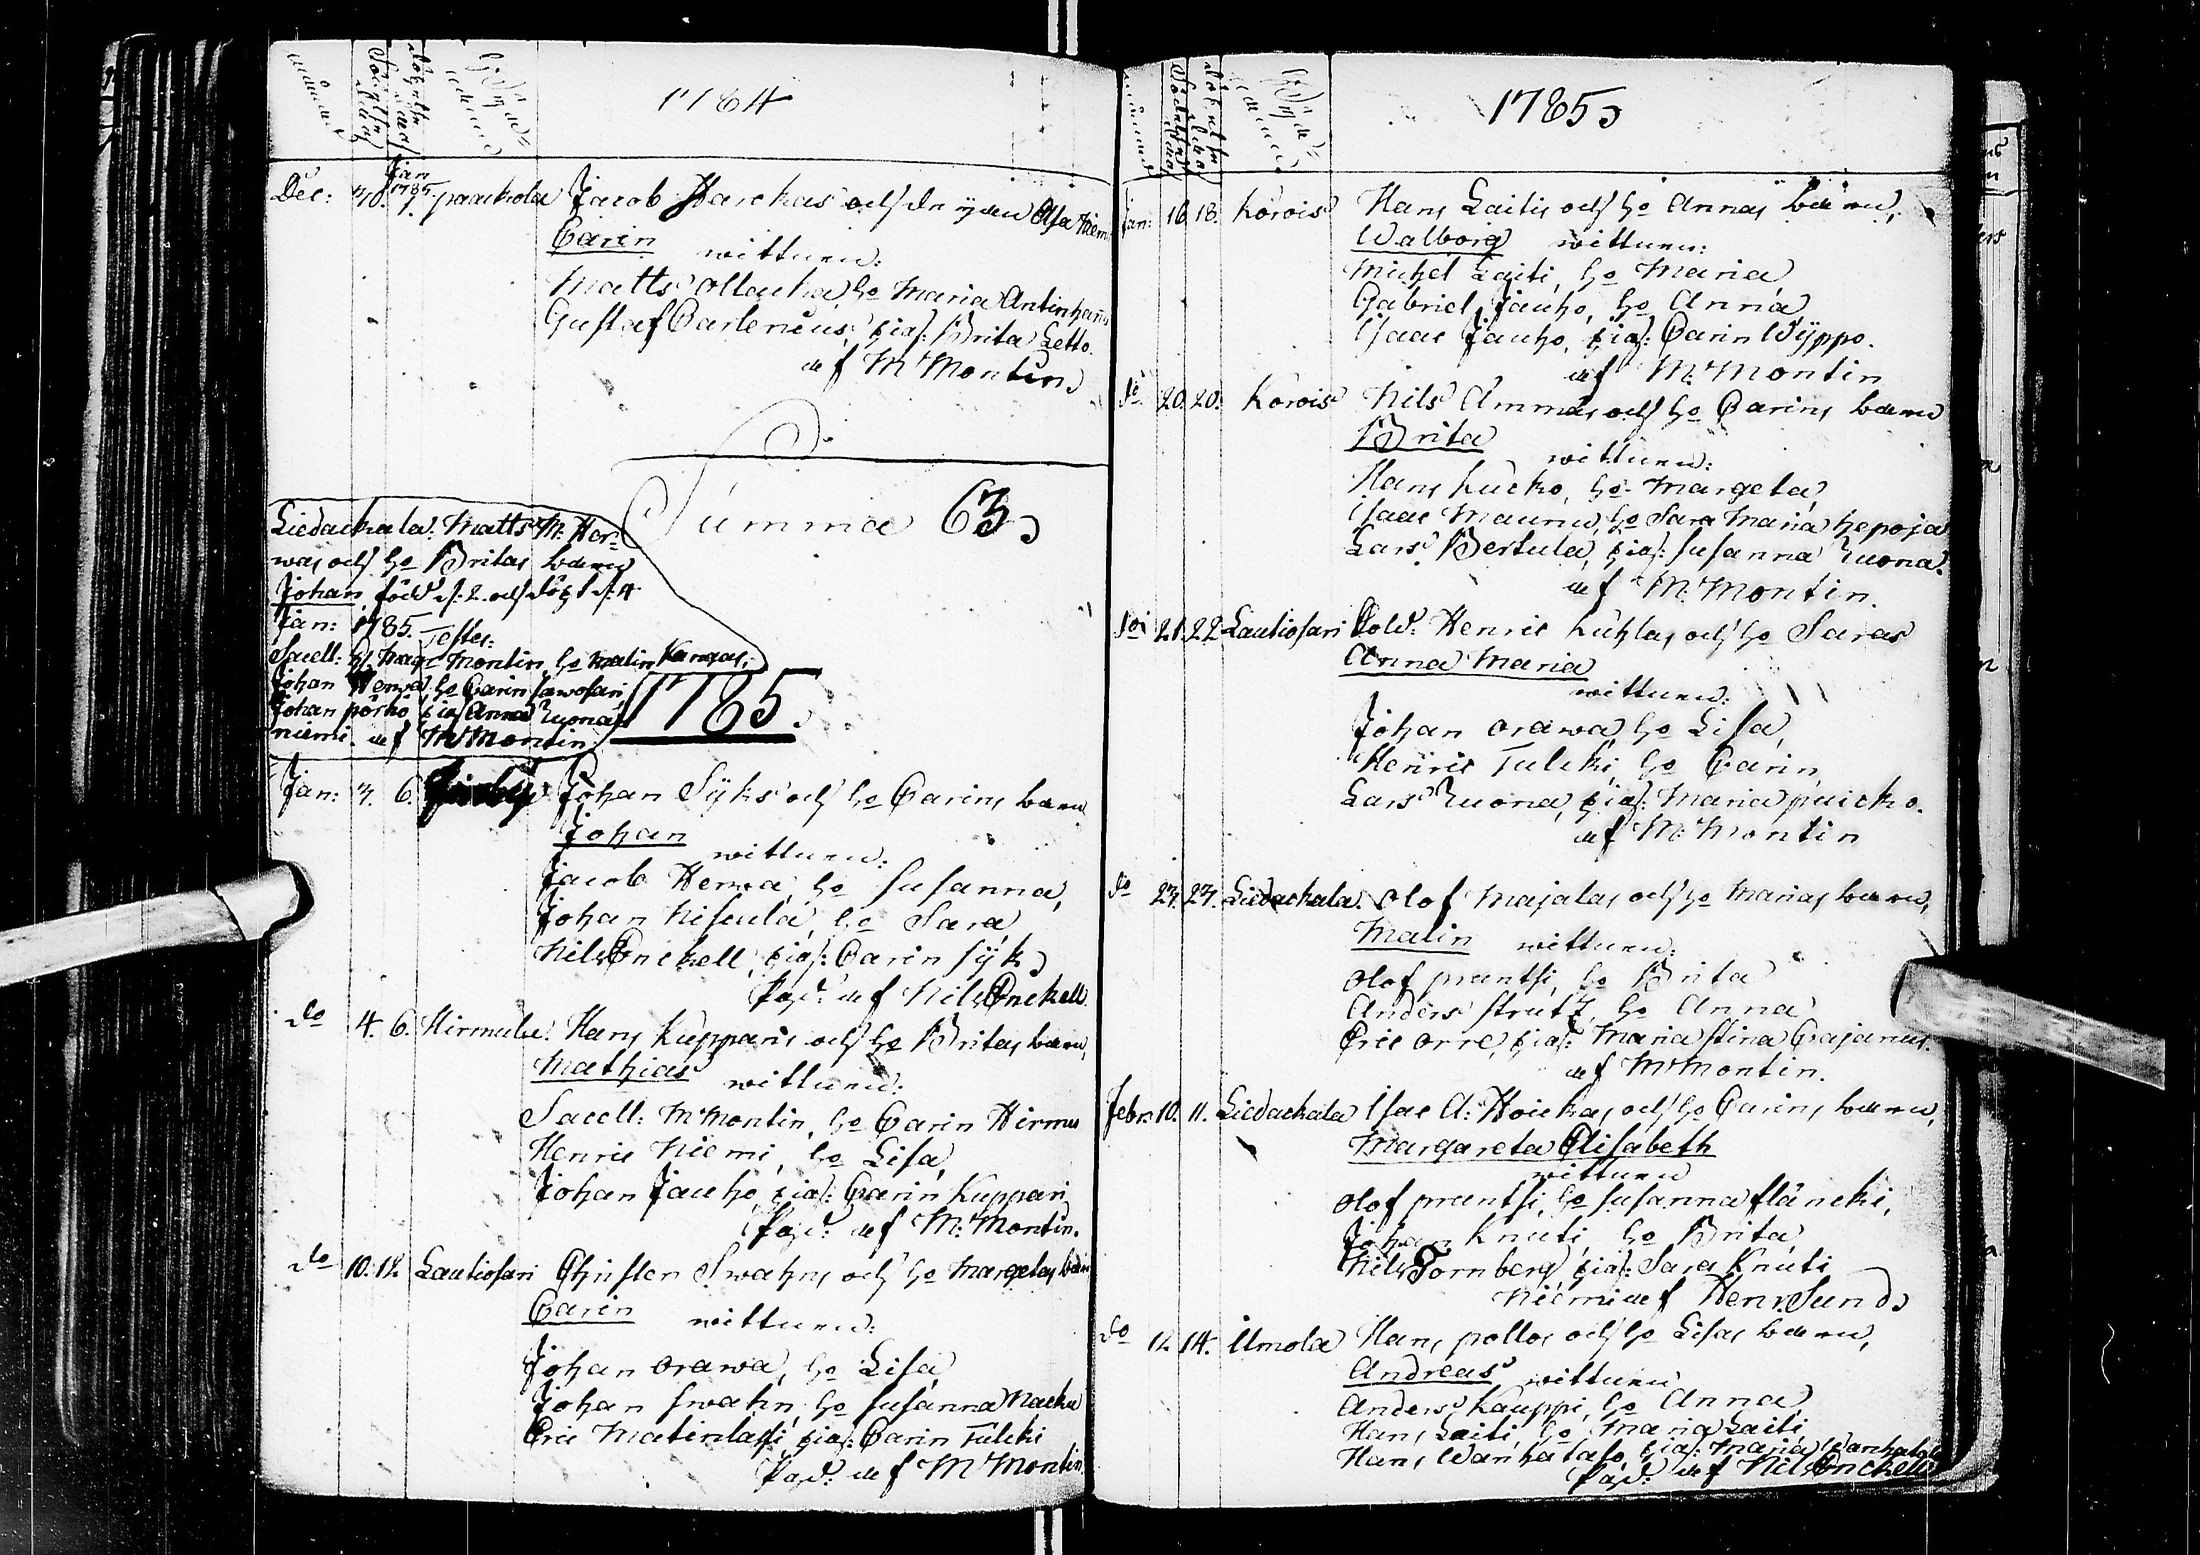 1784
Dec: 30. Jan 1785. 1. paackola Jacob Harckas och dr Asa
Carin wittnen:
Matts Ollanha, ho Maria Antinhans
Gustaf Carlenius, pig: Brita Letto.
af M Montin
Summa 63
Liedackala: Matts M: Her-
was och ho Britas barn
Johan född d: 2. och döpt d: 4
Jan: 1785. Testes:
Sacell: Montin, ho Malin Kangas,
Johan Herva, ho Carin Sawosari,
Johan pörhö, pig Anna Ruona
niemi. af M Montin
1785.
Jan: 3. 6. Johan Syks och ho Carins barn
Johan
wittnen:
Jacob Herva, ho Susanna,
Johan Niskala, ho Sara
Nils Enckell, pig: Carin Syk
af Nils Enckell.
do 4. 6. Hirmula. Hans Kupparis och ho Britas barn,
Mathias wittnen:
Sacell: M Montin, ho Carin Hirmu
Henric Niemi, ho Lisa,
Johan Jauho, pig: Carin Kuppari
af M: Montin.
do 10. 12. Lautiosari Christer Swahns och ho Margetas barn
Carin wittnen:
Johan Orawa, ho Lisa
Johan Swahn, ho Susanna Nacka
Eric Matinlassi, pig: Carin Tulcki
af M Montin
1785
Jan: 16. 18. Korois Hans Laitis och ho Annas barn,
Walborg wittnen:
Michel Laiti, ho Maria
Gabriel Jauho, ho Anna
Isaac Jauho, pig: Carin Wyppo.
af M: Montin
do 20. 20. Korois Nils Ammas och ho Carins barn
Brita
wittnen:
Hans Kucko, ho Margeta,
Isaac Maunu, ho Sara Maria hepoja
Lars Bertula, pig: Susanna Ruona.
af M: Montin.
do 21. 22 Lautiosari Sold: Henric Kuhlas och ho Saras
Anna Maria
wittnen:
Johan Orawa, ho Lisa,
Henric Tulcki, ho Carin,
Lars Ruona, pig: Maria puicko.
af M: Montin
do 23. 23. Liedackala. Olof Majalas och ho Marias barn,
Malin wittnen:
Olof pruntsi, ho Brita
Anders Strutz, ho Anna
Eric Orre, pig: Maria Stina Cajanus.
af M Montin.
Febr: 10. 11. Liedackala Isac A: Hoickas och ho Carins barn,
Margareta Elisabeth
wittnen
Olof pruntsi, ho Susanna flåncki,
Johan Knuti, ho Brita
Nils Tornberg pig: Sara Knuti
Niemi af Henr: Sund
do 12. 14. Ilmola Hans pollos och ho Lisas barn,
Andreas wittnen
Anders Kauppi, ho Anna
Hans Laiti, ho Maria Laiti
Hans Wanhatalo, pig: Maria Wanhatalo
af Nils Enckell